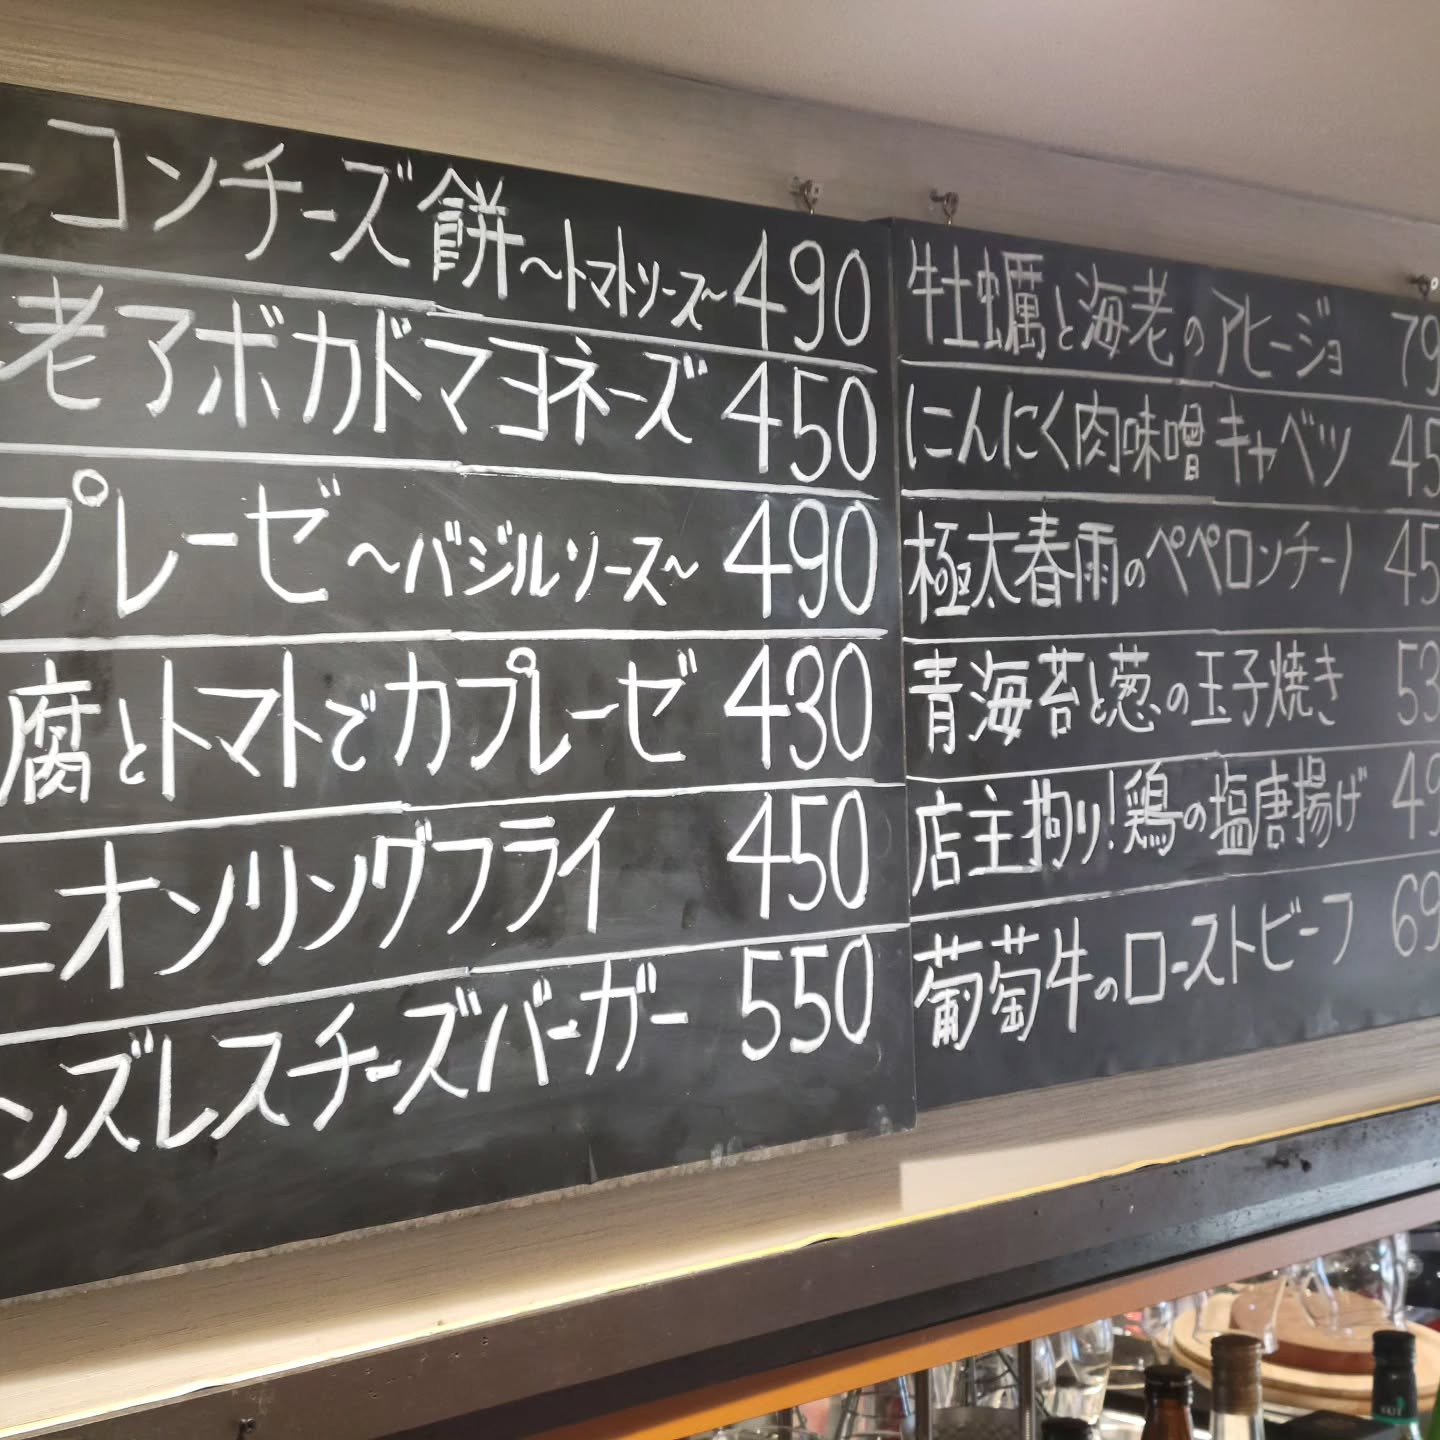 ーコンチーズ餅～トマトソース～490
老アボカドマヨネーズ 450
プレーゼ～バジルソース～ 490
腐とトマトでカプレーゼ 430
ニオンリングフライ 450
ンズレスチーズバーガー 550
牡蠣と海老のアヒージョ 79
にんにく肉味噌キャベツ 45
極太春雨のペペロンチーノ 45
青海苔と葱の玉子焼き 53
店主拘り!鶏の塩唐揚げ 49
葡萄牛のローストビーフ 69